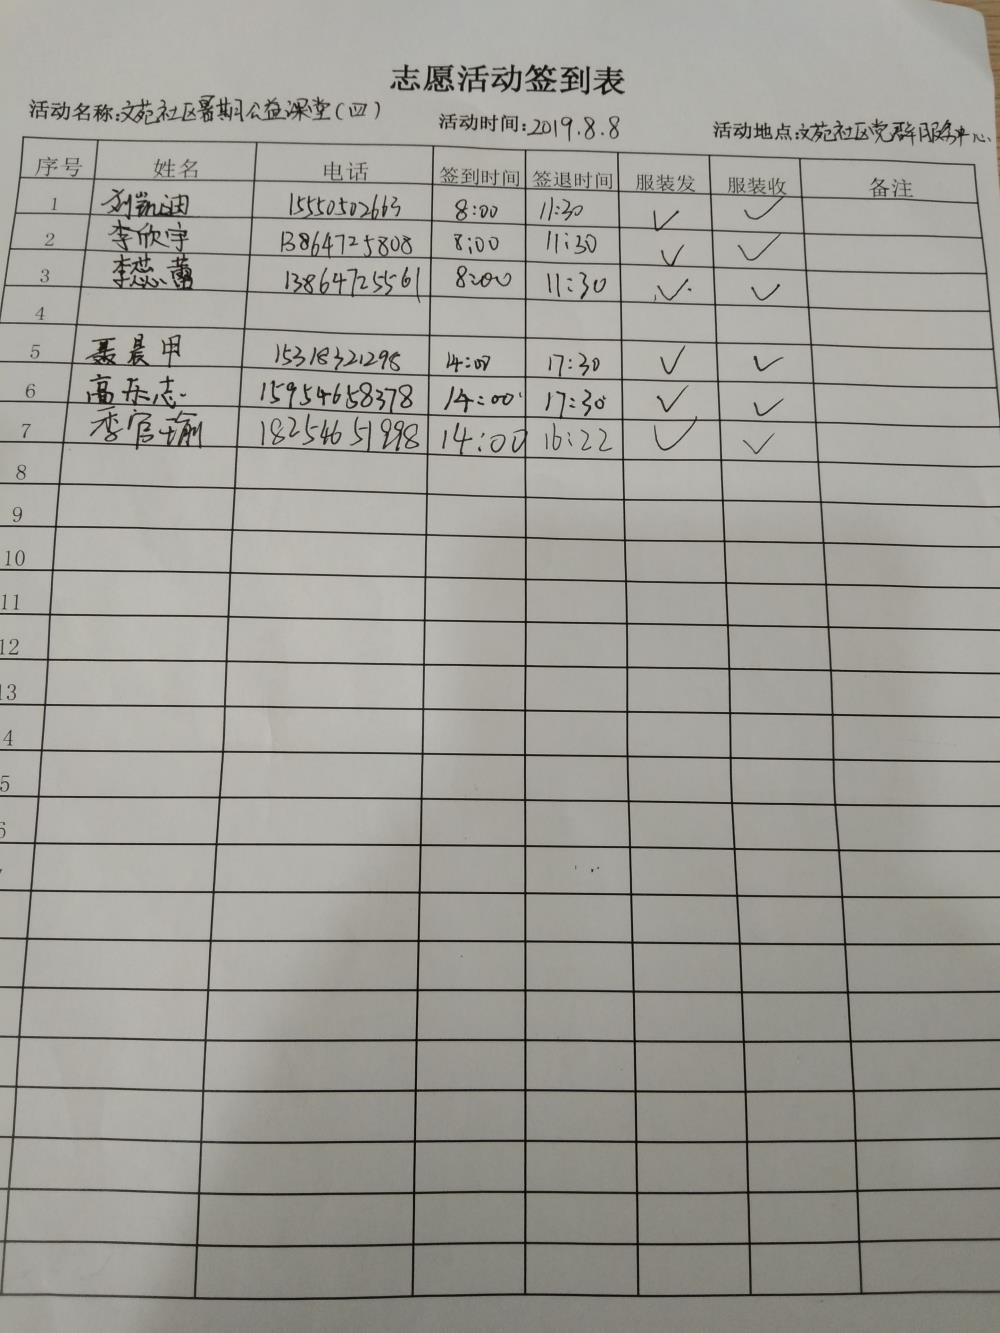 志愿活动签到表
活动名称:文苑社区暑期公益课堂(四) 活动时间:2019.8.8 活动地点:文苑社区党群服务中心
序号 姓名 电话 签到时间 签退时间 服装发 服装收 备注
1 刘凯迪 15550502663 8:00 11:30 ✓ ✓
2 李欣宇 13864725808 8:00 11:30 ✓ ✓
3 李蕊蕾 13864725561 8:00 11:30 ✓ ✓
4
5 聂晨甲 15318321298 14:00 17:30 ✓ ✓
6 高东志 15954658378 14:00 17:30 ✓ ✓
7 季官瑜 18254651998 14:00 16:22 ✓ ✓
8
9
10
11
12
13
4
5
6